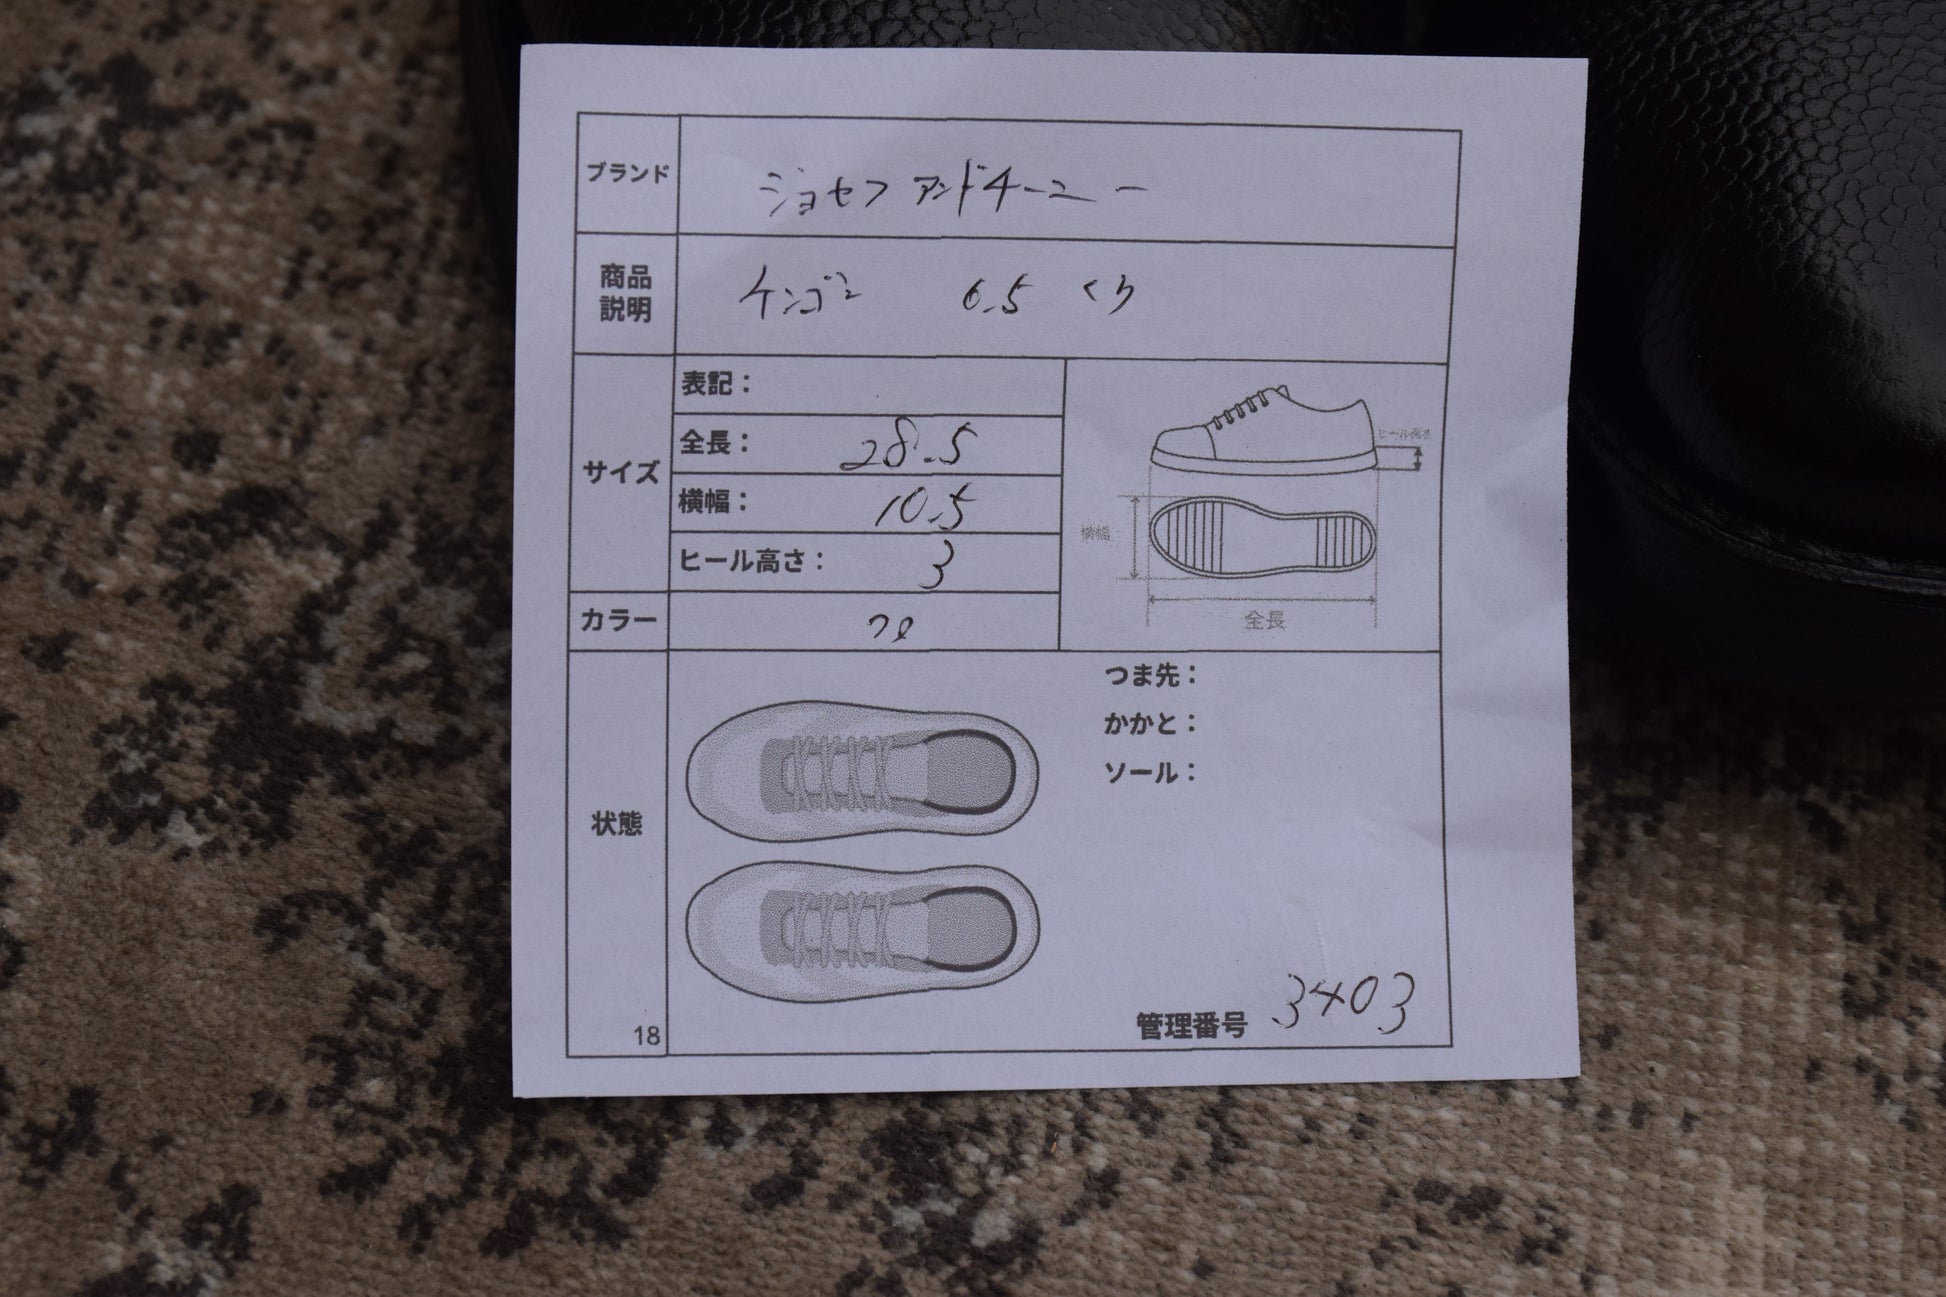 ブランド ジョセフ アンドチーニー
商品説明 ケンゴン 6.5 くり
サイズ
表記：
全長： 28.5
横幅： 10.5
ヒール高さ： 3
ヒール高さ
横幅
全長
カラー クロ
状態
つま先：
かかと：
ソール：
管理番号 3403
18